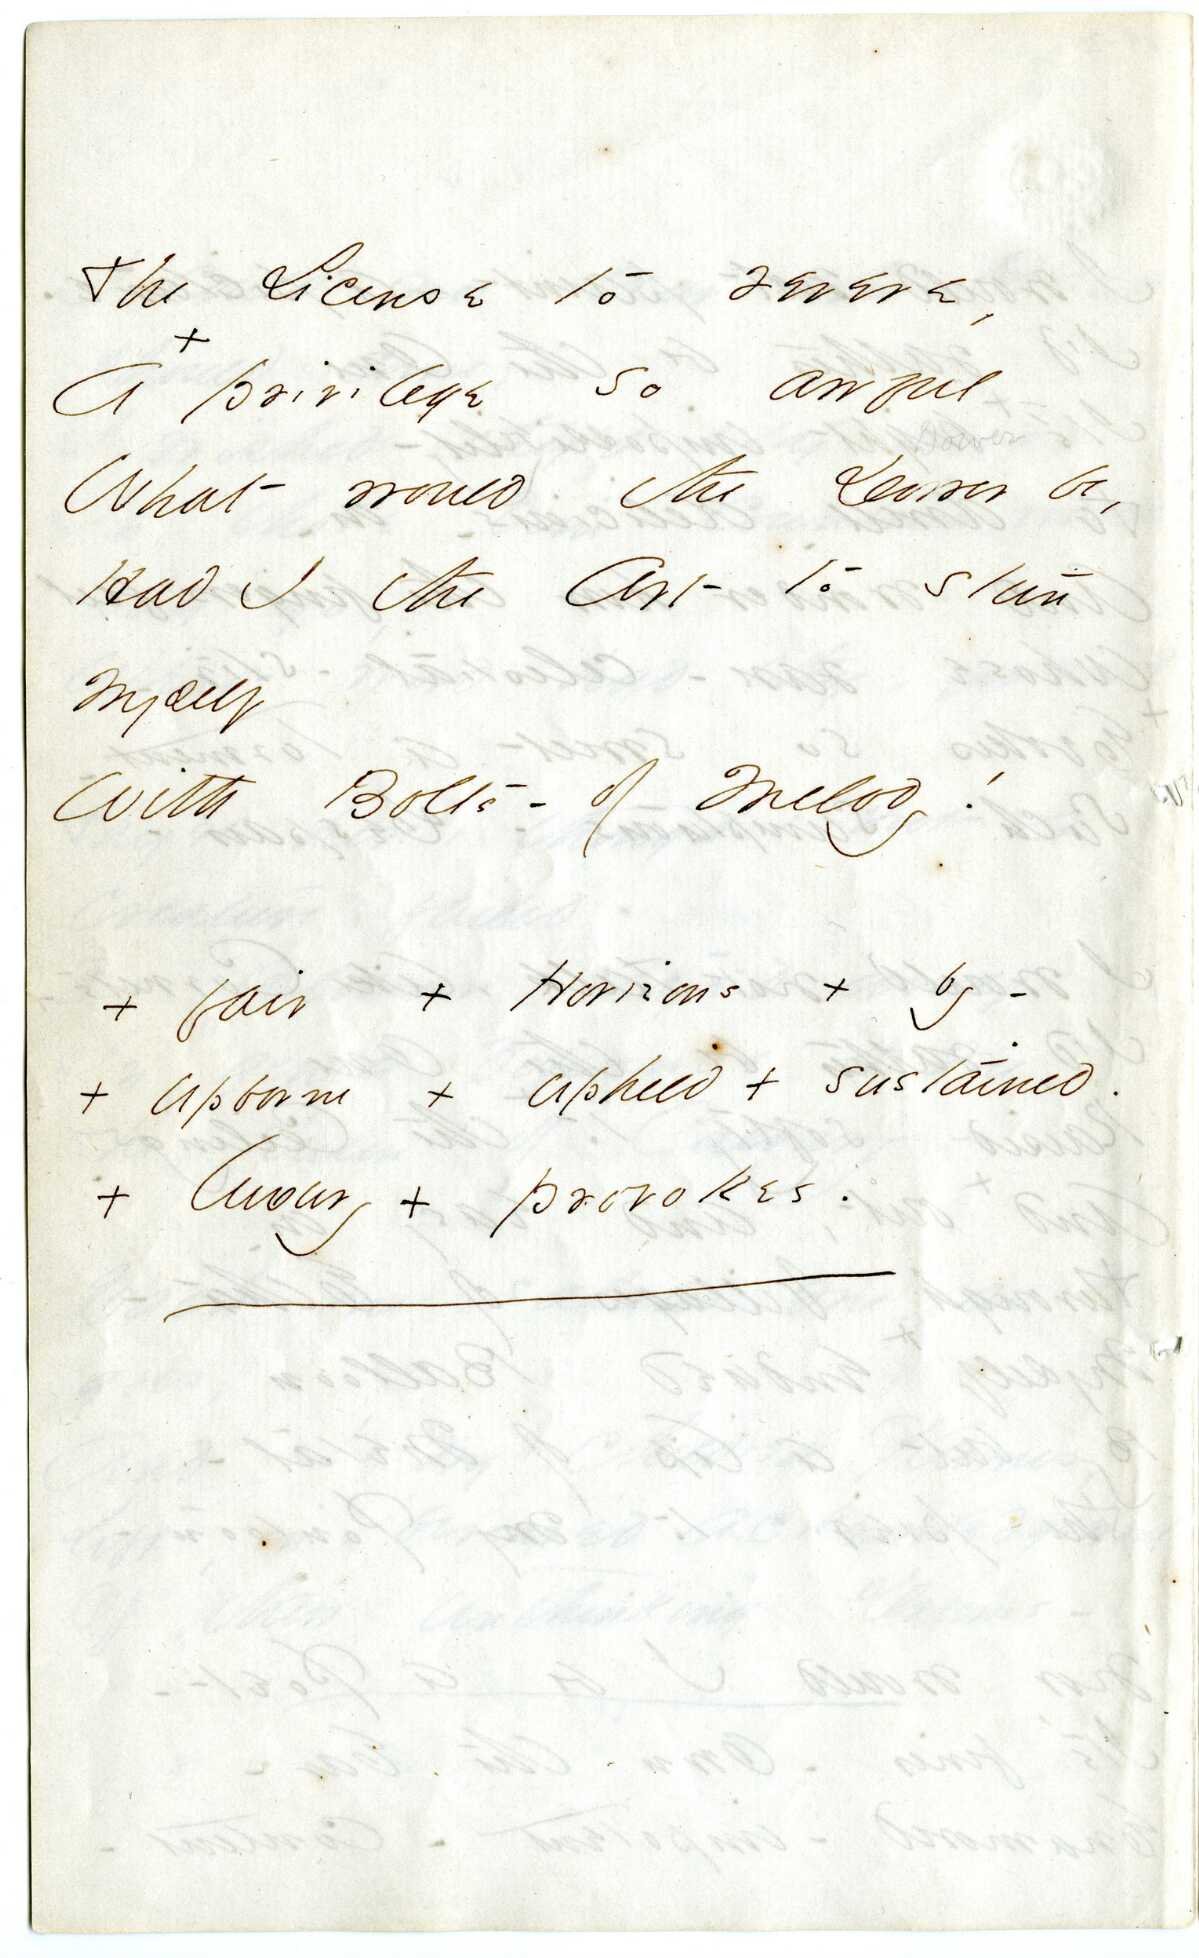 The License to revere,
+
A privilege so awful
Dower
What would the Dower be,
Had I the Art to stun
Myself
With Bolts - of Melody!
+ fair + Horizons + by -
+ upborne + upheld + sustained.
+ luxury + provokes.